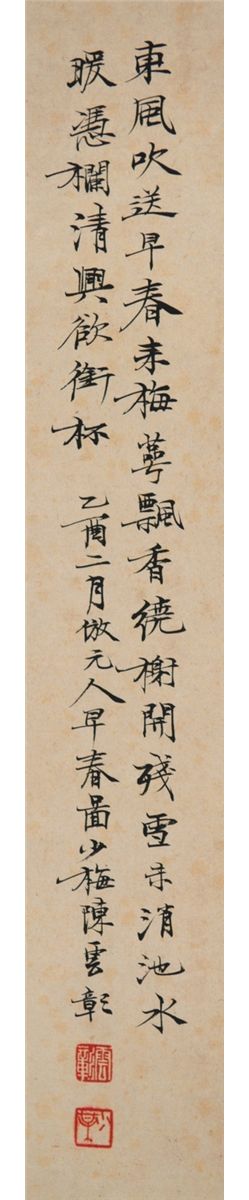 東風吹送早春来梅萼飄香繞榭開殘雪未消池水
暖憑欄清興欲銜杯　乙酉二月倣元人早春圖少梅陳雲彰
雲彰